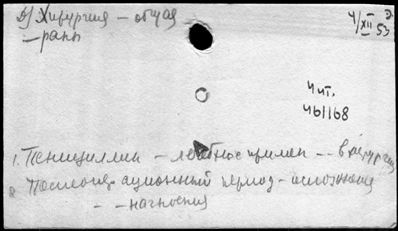 Хирургия – общая
– раны
4/XII 53
Чит.
461168
1. Пенициллин – лечебное примен – – в хирургии
2. Послеоперационный период – осложнения
– – нагноения